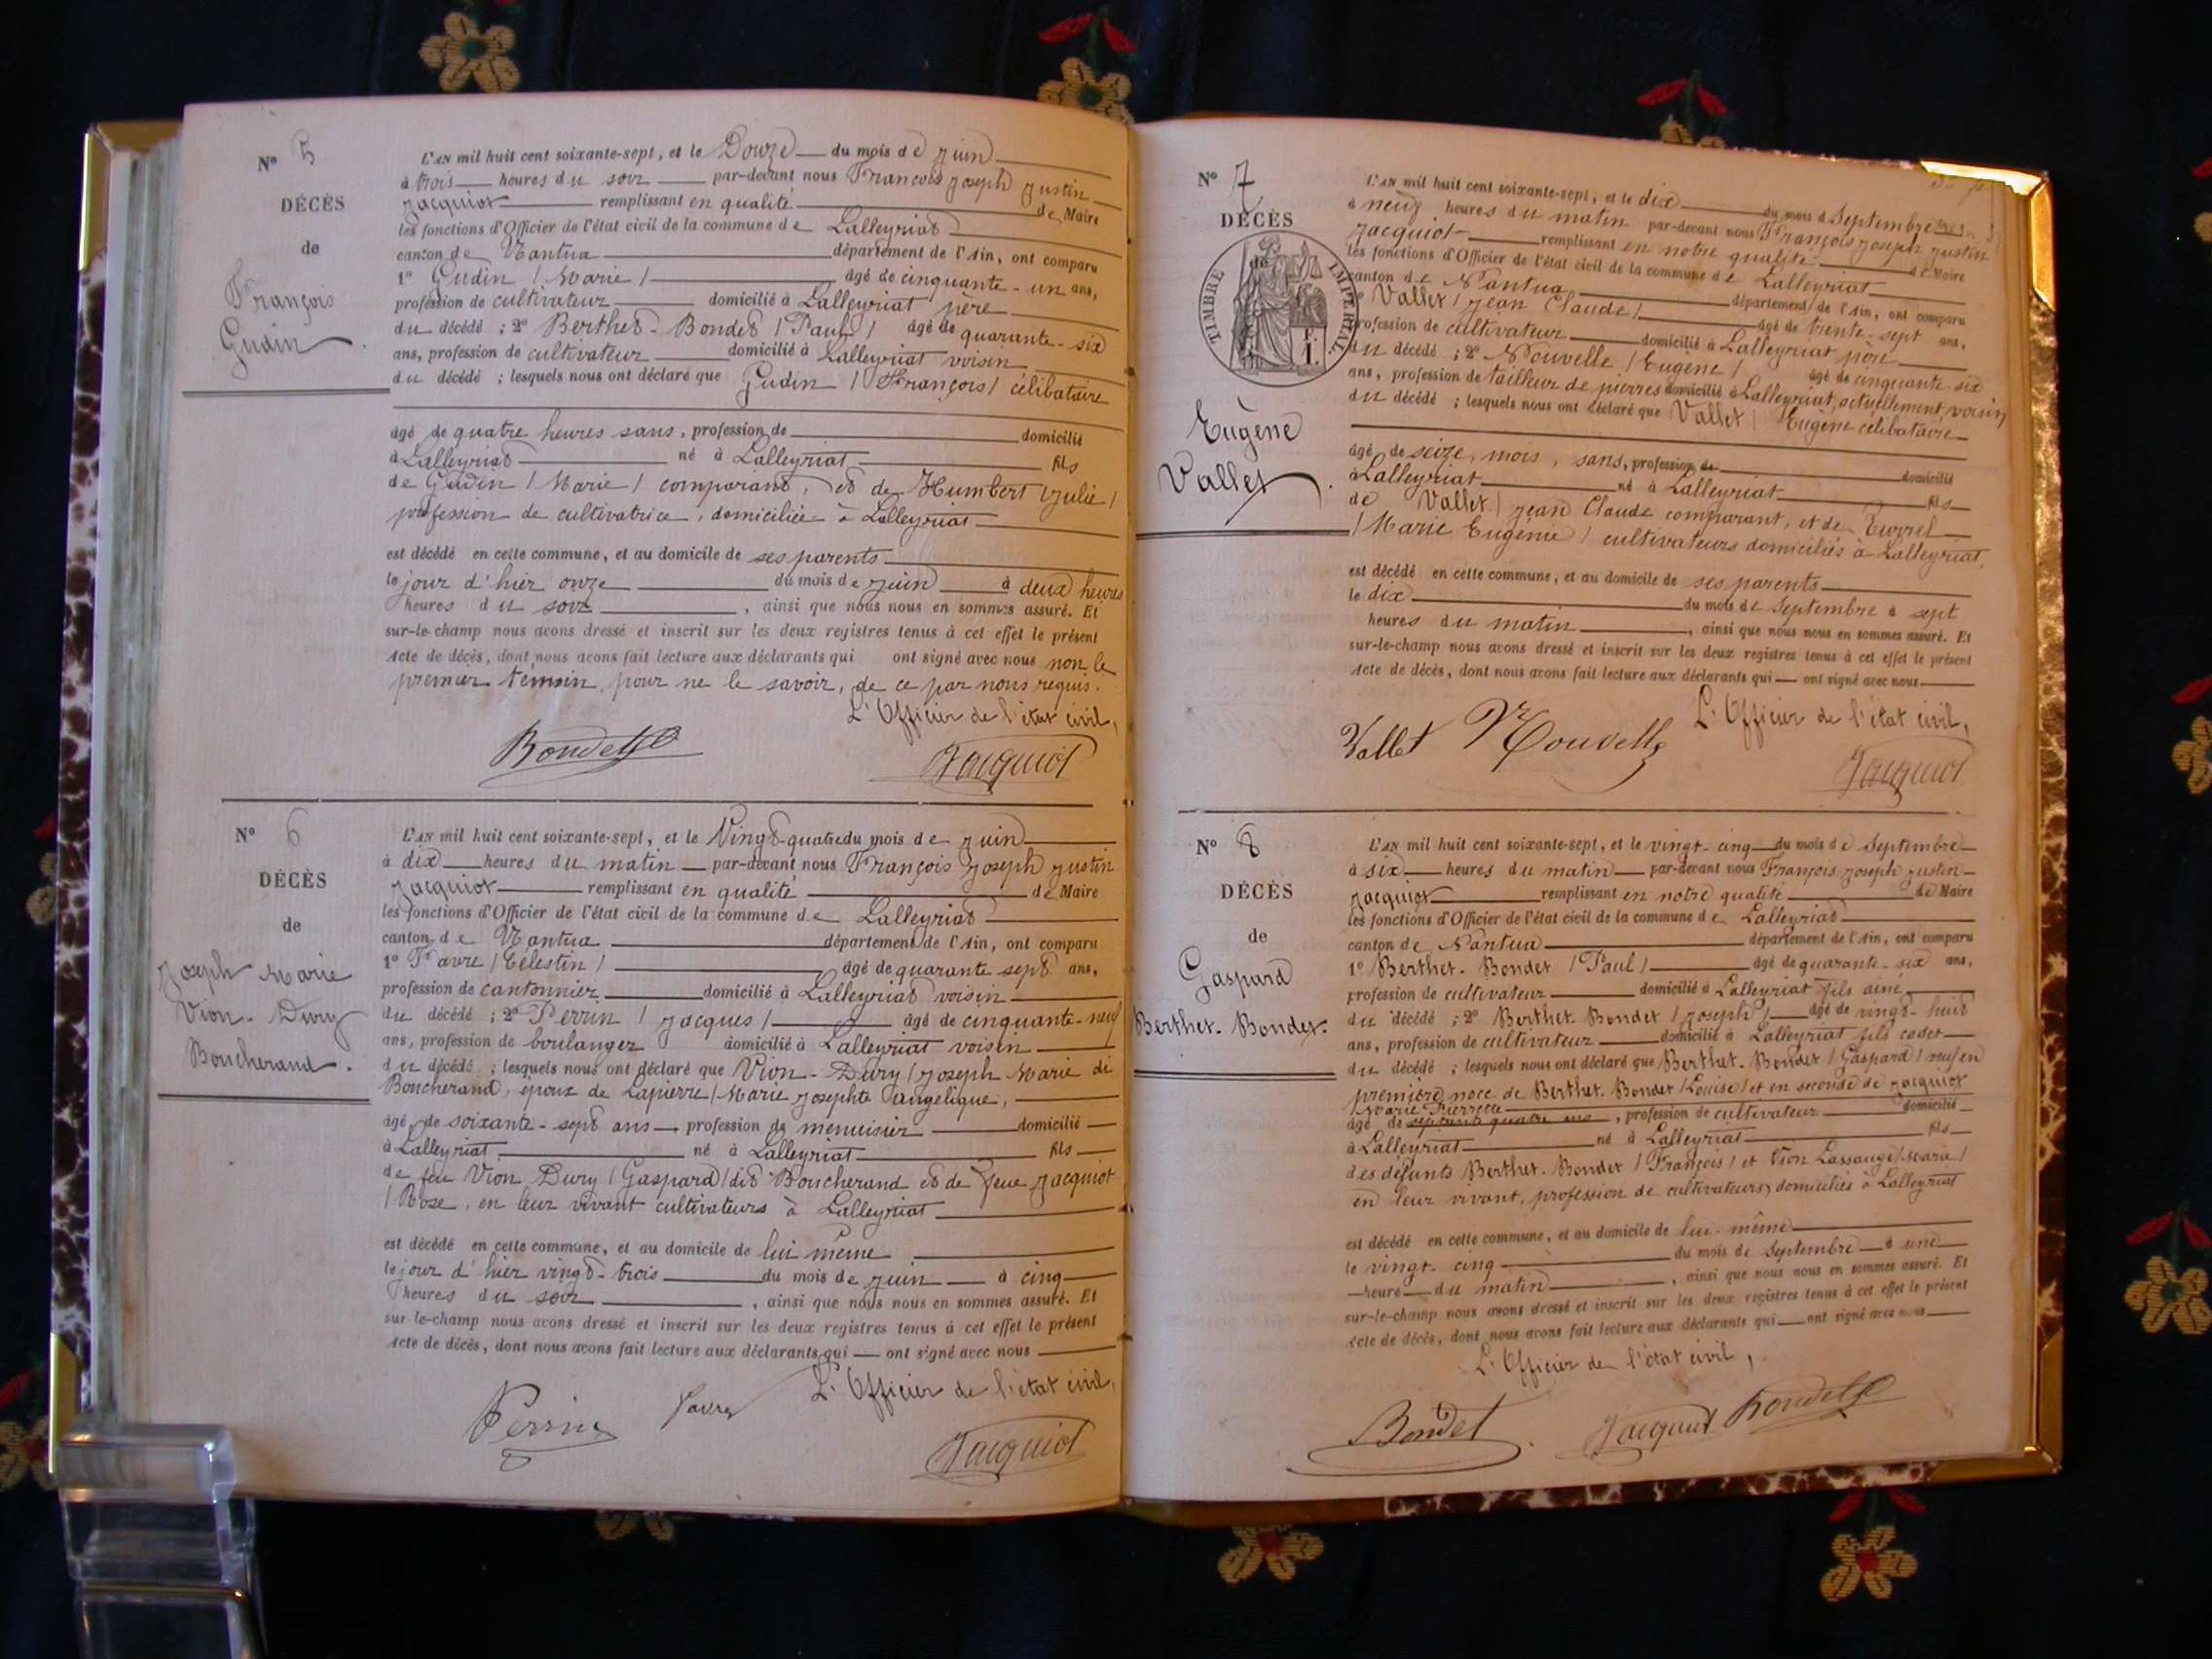 N° 5
DÉCÈS
de
François
Gudin
L'AN mil huit cent soixante-sept, et le Douze du mois de juin
à trois heures du soir par-devant nous François Joseph Justin
Jacquiot remplissant en qualité de Maire
les fonctions d'Officier de l'état civil de la commune de Lalleyriat
canton de Nantua département de l'Ain, ont comparu
1° Gudin / Marie / âgé de cinquante-un ans,
profession de cultivateur domicilié à Lalleyriat père
du décédé ; 2° Berthet-Bondet / Paul / âgé de quarante-six
ans, profession de cultivateur domicilié à Lalleyriat voisin
du décédé ; lesquels nous ont déclaré que Gudin / François / célibataire
âgé de quatre heures sans, profession de domicilié
à Lalleyriat né à Lalleyriat fils
de Gudin / Marie / comparant, et de Humbert / Julie /
profession de cultivatrice, domiciliée à Lalleyriat
est décédé en cette commune, et au domicile de ses parents
le jour d'hier onze du mois de juin à deux heures
heures du soir , ainsi que nous nous en sommes assuré. Et
sur-le-champ nous avons dressé et inscrit sur les deux registres tenus à cet effet le présent
acte de décès, dont nous avons fait lecture aux déclarants qui ont signé avec nous non le
premier témoin, pour ne le savoir, de ce par nous requis.
L'Officier de l'état civil,
Bondet Jacquiot
N° 6
DÉCÈS
de
Joseph Marie
Vion-Dury
Boucherand.
L'AN mil huit cent soixante-sept, et le Vingt-quatre du mois de juin
à dix heures du matin par-devant nous François Joseph Justin
Jacquiot remplissant en qualité de Maire
les fonctions d'Officier de l'état civil de la commune de Lalleyriat
canton de Nantua département de l'Ain, ont comparu
1° Favre / Célestin / âgé de quarante sept ans,
profession de cantonnier domicilié à Lalleyriat voisin
du décédé ; 2° Perrin / Jacques / âgé de cinquante-neuf
ans, profession de boulanger domicilié à Lalleyriat voisin
du décédé ; lesquels nous ont déclaré que Vion-Dury / Joseph-Marie di
Boucherand, époux de Lapierre / Marie Josephte angelique,
âgé de soixante-sept ans profession de menuisier domicilié
à Lalleyriat né à Lalleyriat fils
de feu Vion Dury / Gaspard / dit Boucherand et de feue Jacquiot
/ Rose, en leur vivant cultivateurs à Lalleyriat
est décédé en cette commune, et au domicile de lui même
le jour d'hier vingt-trois du mois de juin à cinq
heures du soir , ainsi que nous nous en sommes assuré. Et
sur-le-champ nous avons dressé et inscrit sur les deux registres tenus à cet effet le présent
acte de décès, dont nous avons fait lecture aux déclarants qui ont signé avec nous
L'Officier de l'état civil,
Perrin Favre Jacquiot
N° 7
DÉCÈS
de
TIMBRE IMPÉRIAL
Eugène
Vallet.
L'AN mil huit cent soixante-sept, et le dix du mois d Septembre
à neuf heures du matin par-devant nous François Joseph Justin
Jacquiot remplissant en notre qualité de Maire
les fonctions d'Officier de l'état civil de la commune de Lalleyriat
canton de Nantua département de l'Ain, ont comparu
1° Vallet / Jean Claude / âgé de trente-sept ans,
profession de cultivateur domicilié à Lalleyriat père
du décédé ; 2° Nouvelle / Eugène / âgé de cinquante-six
ans, profession de tailleur de pierres domicilié à Lalleyriat, actuellement, voisin
du décédé ; lesquels nous ont déclaré que Vallet / Eugène célibataire
âgé de seize, mois, sans, profession de domicilié
à Lalleyriat né à Lalleyriat fils
de Vallet / Jean Claude comparant, et de Turrel
/ Marie Eugénie / cultivateurs domiciliés à Lalleyriat,
est décédé en cette commune, et au domicile de ses parents
le dix du mois de Septembre à sept
heures du matin , ainsi que nous nous en sommes assuré. Et
sur-le-champ nous avons dressé et inscrit sur les deux registres tenus à cet effet le présent
acte de décès, dont nous avons fait lecture aux déclarants qui ont signé avec nous
L'Officier de l'état civil,
Vallet Nouvelle Jacquiot
N° 8
DÉCÈS
de
Gaspard
Berthet-Bondet.
L'AN mil huit cent soixante-sept, et le vingt-cinq du mois de Septembre
à six heures du matin par-devant nous François Joseph Justin
Jacquiot remplissant en notre qualité de Maire
les fonctions d'Officier de l'état civil de la commune de Lalleyriat
canton de Nantua département de l'Ain, ont comparu
1° Berthet-Bondet / Paul / âgé de quarante-six ans,
profession de cultivateur domicilié à Lalleyriat fils aîné
du décédé ; 2° Berthet-Bondet / Joseph / âgé de vingt-huit
ans, profession de cultivateur domicilié à Lalleyriat fils cadet
du décédé ; lesquels nous ont déclaré que Berthet-Bondet / Gaspard / veuf en
première noce de Berthet-Bondet / Louise / et en seconde de Jacquiot
/ Marie Pierrette
âgé de septante quatre ans, profession de cultivateur domicilié
à Lalleyriat né à Lalleyriat fils
des défunts Berthet-Bondet / François / et Vion Lassauge / Marie /
en leur vivant, profession de cultivateurs, domiciliés à Lalleyriat
est décédé en cette commune, et au domicile de lui-même
le vingt-cinq du mois de Septembre à une
heure du matin , ainsi que nous nous en sommes assuré. Et
sur-le-champ nous avons dressé et inscrit sur les deux registres tenus à cet effet le présent
acte de décès, dont nous avons fait lecture aux déclarants qui ont signé avec nous
L'Officier de l'état civil,
Bondet Jacquiot Bondet